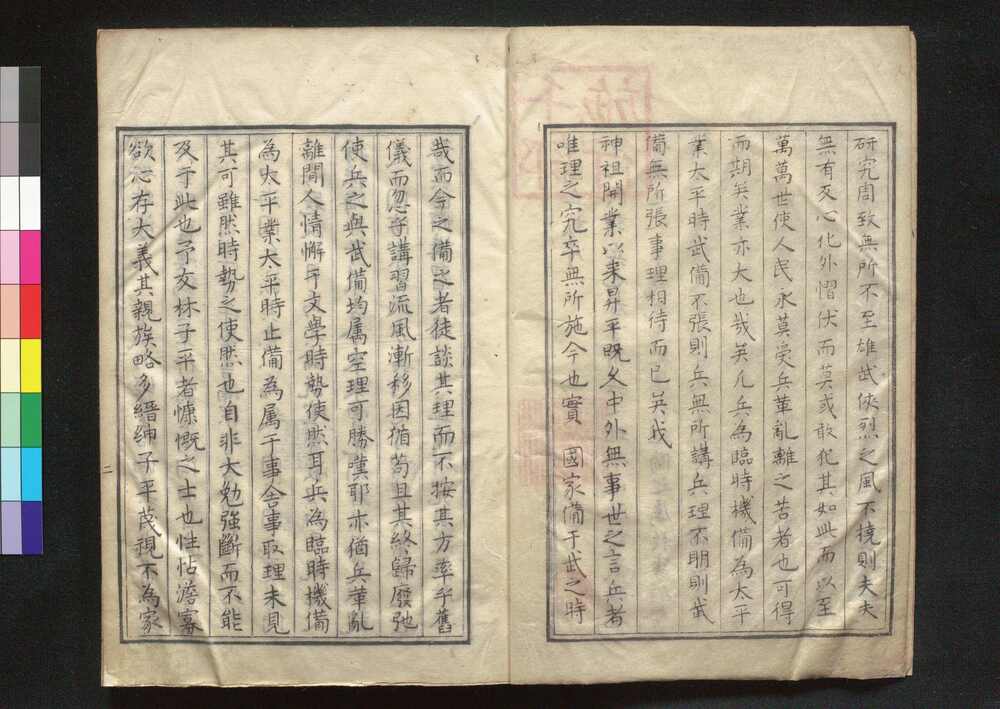 研究周致無所不至雄武俠烈之風不撓則夫夫
無有叐心化外慴伏而莫或敢犯其如此而以至
萬萬世使人民永莫受兵革亂離之苦者也可得
而期矣業亦大也哉矣凡兵為臨時機備為太平
業太平時武備不張則兵無所講兵理不明則武
備無所張事理相待而已矣我
神祖開業以来昇平既久中外無事世之言兵者
唯理之究卒無所施今也實　國家備于武之時
哉而今之備之者徒談其理而不按其方率乎舊
儀而忽乎講習流風漸移因循苟且其終歸廢弛
使兵之與武備均属空理可勝嘆耶亦猶兵革亂
離間人情懈乎文學時勢使然耳兵為臨時機備
為太平業太平時止備為属于事舍事取理未見
其可雖然時勢之使然也自非大勉強斷而不能
及于此也予友林子平者慷慨之士也性恬澹寡
欲心存大義其親族略多縉紳子平蔑視不為家
二